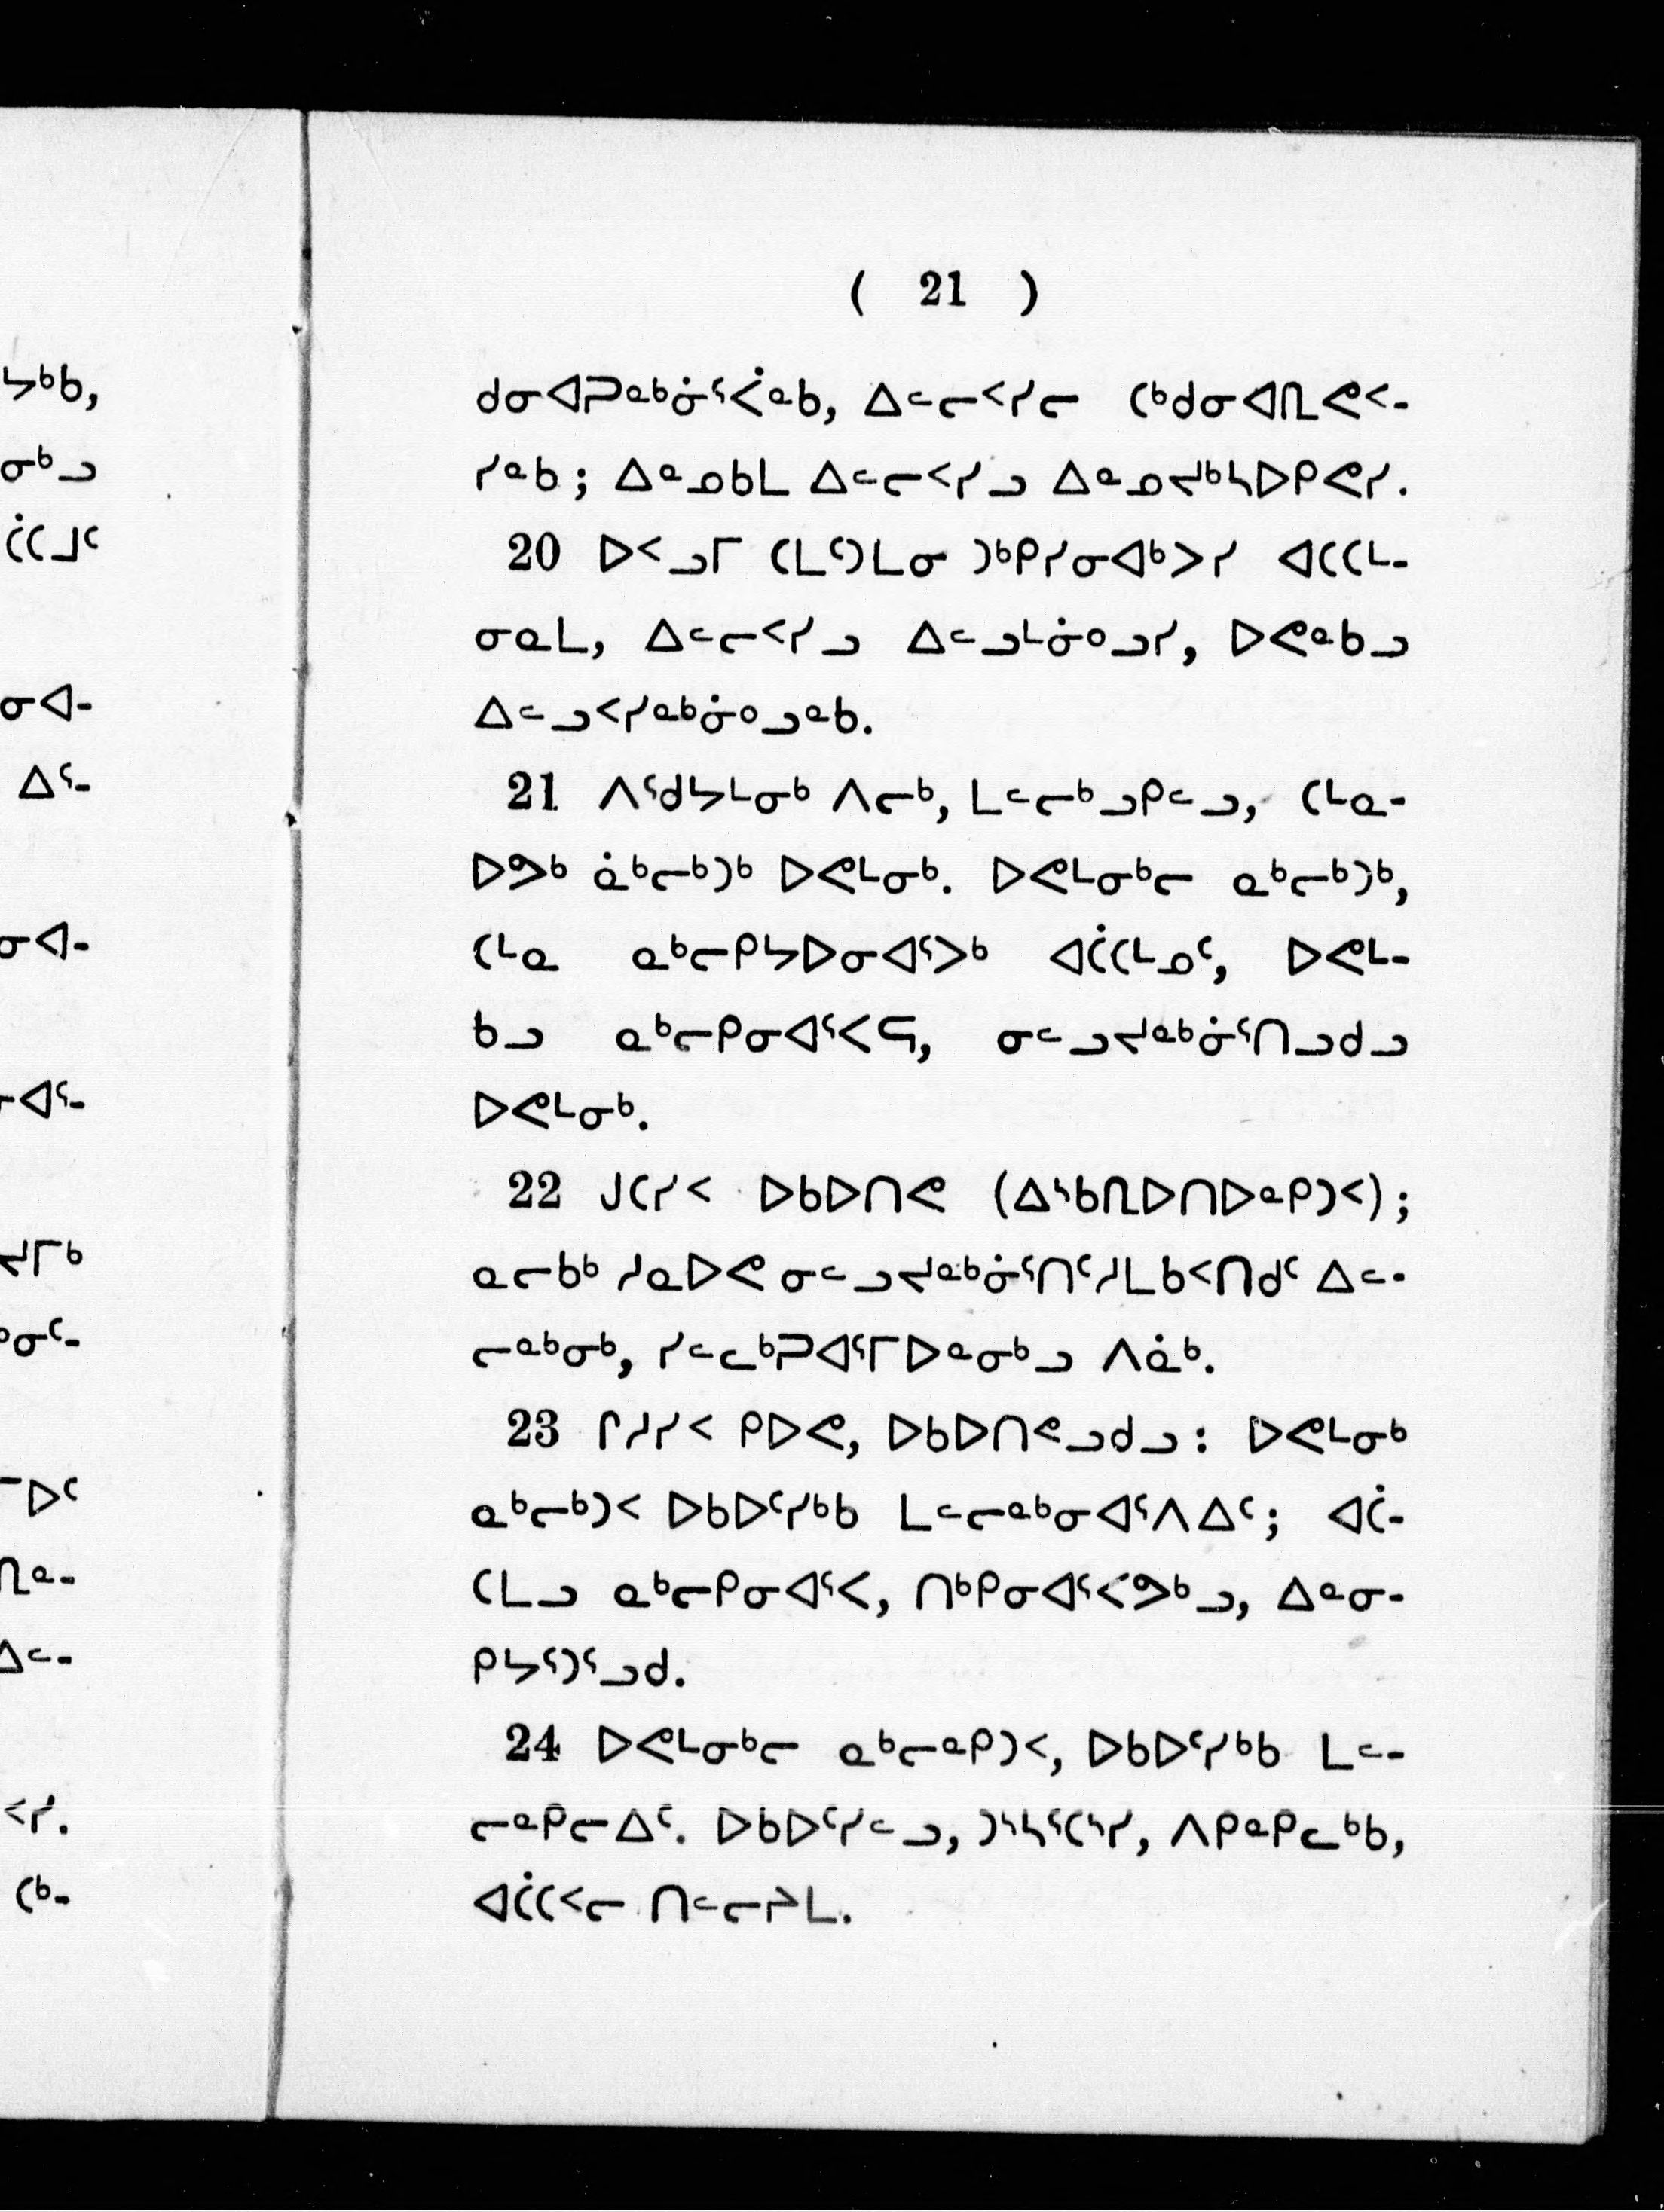 ( 21 )
ᑯᓂᐊᕈᓐᒃᓃᕐᐹᓐᑲ, ᐃᓪᓕᑉᓯᓕ ᑕᒃᑯᓂᐊᕆᕙᑉ-
ᓯᓐᑲ; ᐃᓐᓄᑲᒪ ᐃᓪᓕᑉᓯᓗ ᐃᓐᓄᔪᒃᓴᐅᑭᕙᓯ.
20 ᐅᑉᓗᒥ ᑕᒪᕐᑐᒪᓂ ᑐᒃᑭᓯᓂᐊᒃᐳᓯ ᐊᑕᑕᒻ-
ᓂᓇᒪ, ᐃᓪᓕᑉᓯᓗ ᐃᓪᓗᒻᓃᐤᓗᓯ, ᐅᕙᓐᑲᓗ
ᐃᓪᓗᑉᓯᓐᒃᓃᐤᓗᓐᑲ.
21 ᐱᕐᑯᔭᒻᓂᒃ ᐱᓕᒃ, ᒪᓪᓕᒃᓗᑭᓪᓗ, ᑕᒻᓇ-
ᐅᕗᒃ ᓈᒃᓕᒃᑐᒃ ᐅᕙᒻᓂᒃ. ᐅᕙᒻᓂᒃᓕ ᓇᒃᓕᒃᑐᒃ,
ᑕᒻᓇ ᓇᒃᓕᑭᔭᐅᓂᐊᕐᐳᒃ ᐊᑖᑕᒻᓄᑦ, ᐅᕙᒻ-
ᑲᓗ ᓇᒃᓕᑭᓂᐊᕐᐸᕋ, ᓂᓪᓗᔪᓐᒃᓃᕐᑎᓗᑯᓗ
ᐅᕙᒻᓂᒃ.
22 ᒍᑕᓯᑉ ᐅᑲᐅᑎᕙ (ᐃᔅᑲᕆᐅᑎᐅᓐᑭᑐᑉ);
ᓇᓕᑲᒃ ᓱᓇᐅᕙ ᓂᓪᓗᔪᓐᒃᓃᕐᑎᑦᓱᒪᑲᑉᑎᑯᑦ ᐃᓪ-
ᓕᓐᒃᓂᒃ, ᓯᓪᓚᒃᑐᐊᕐᒥᐅᓐᓂᒃᓗ ᐱᓈᒃ.
23 ᒋᓱᓯᑉ ᑭᐅᕙ, ᐅᑲᐅᑎᕙᓗᑯᓗ: ᐅᕙᒻᓂᒃ
ᓇᒃᓕᒃᑐᑉ ᐅᑲᐅᑦᓯᒃᑲ ᒪᓪᓕᓐᒃᓂᐊᕐᐱᐃᑦ; ᐊᑖ-
ᑕᒪᓗ ᓇᒃᓕᑭᓂᐊᕐᐸ, ᑎᒃᑭᓂᐊᕐᐸᕗᒃᓗ, ᐃᓐᓂ-
ᑭᔭᕐᑐᕐᓗᑯ.
24 ᐅᕙᒻᓂᒃᓕ ᓇᒃᓕᓐᑭᑐᑉ, ᐅᑲᐅᑦᓯᒃᑲ ᒪᓪ-
ᓕᓐᑭᓕᐃᑦ. ᐅᑲᐅᑦᓯᓪᓗ, ᑐᔅᓴᕐᑕᔅᓯ, ᐱᑭᓐᑭᓚᒃᑲ,
ᐊᑖᑕᑉᓕ ᑎᓪᓕᔨᒪ.